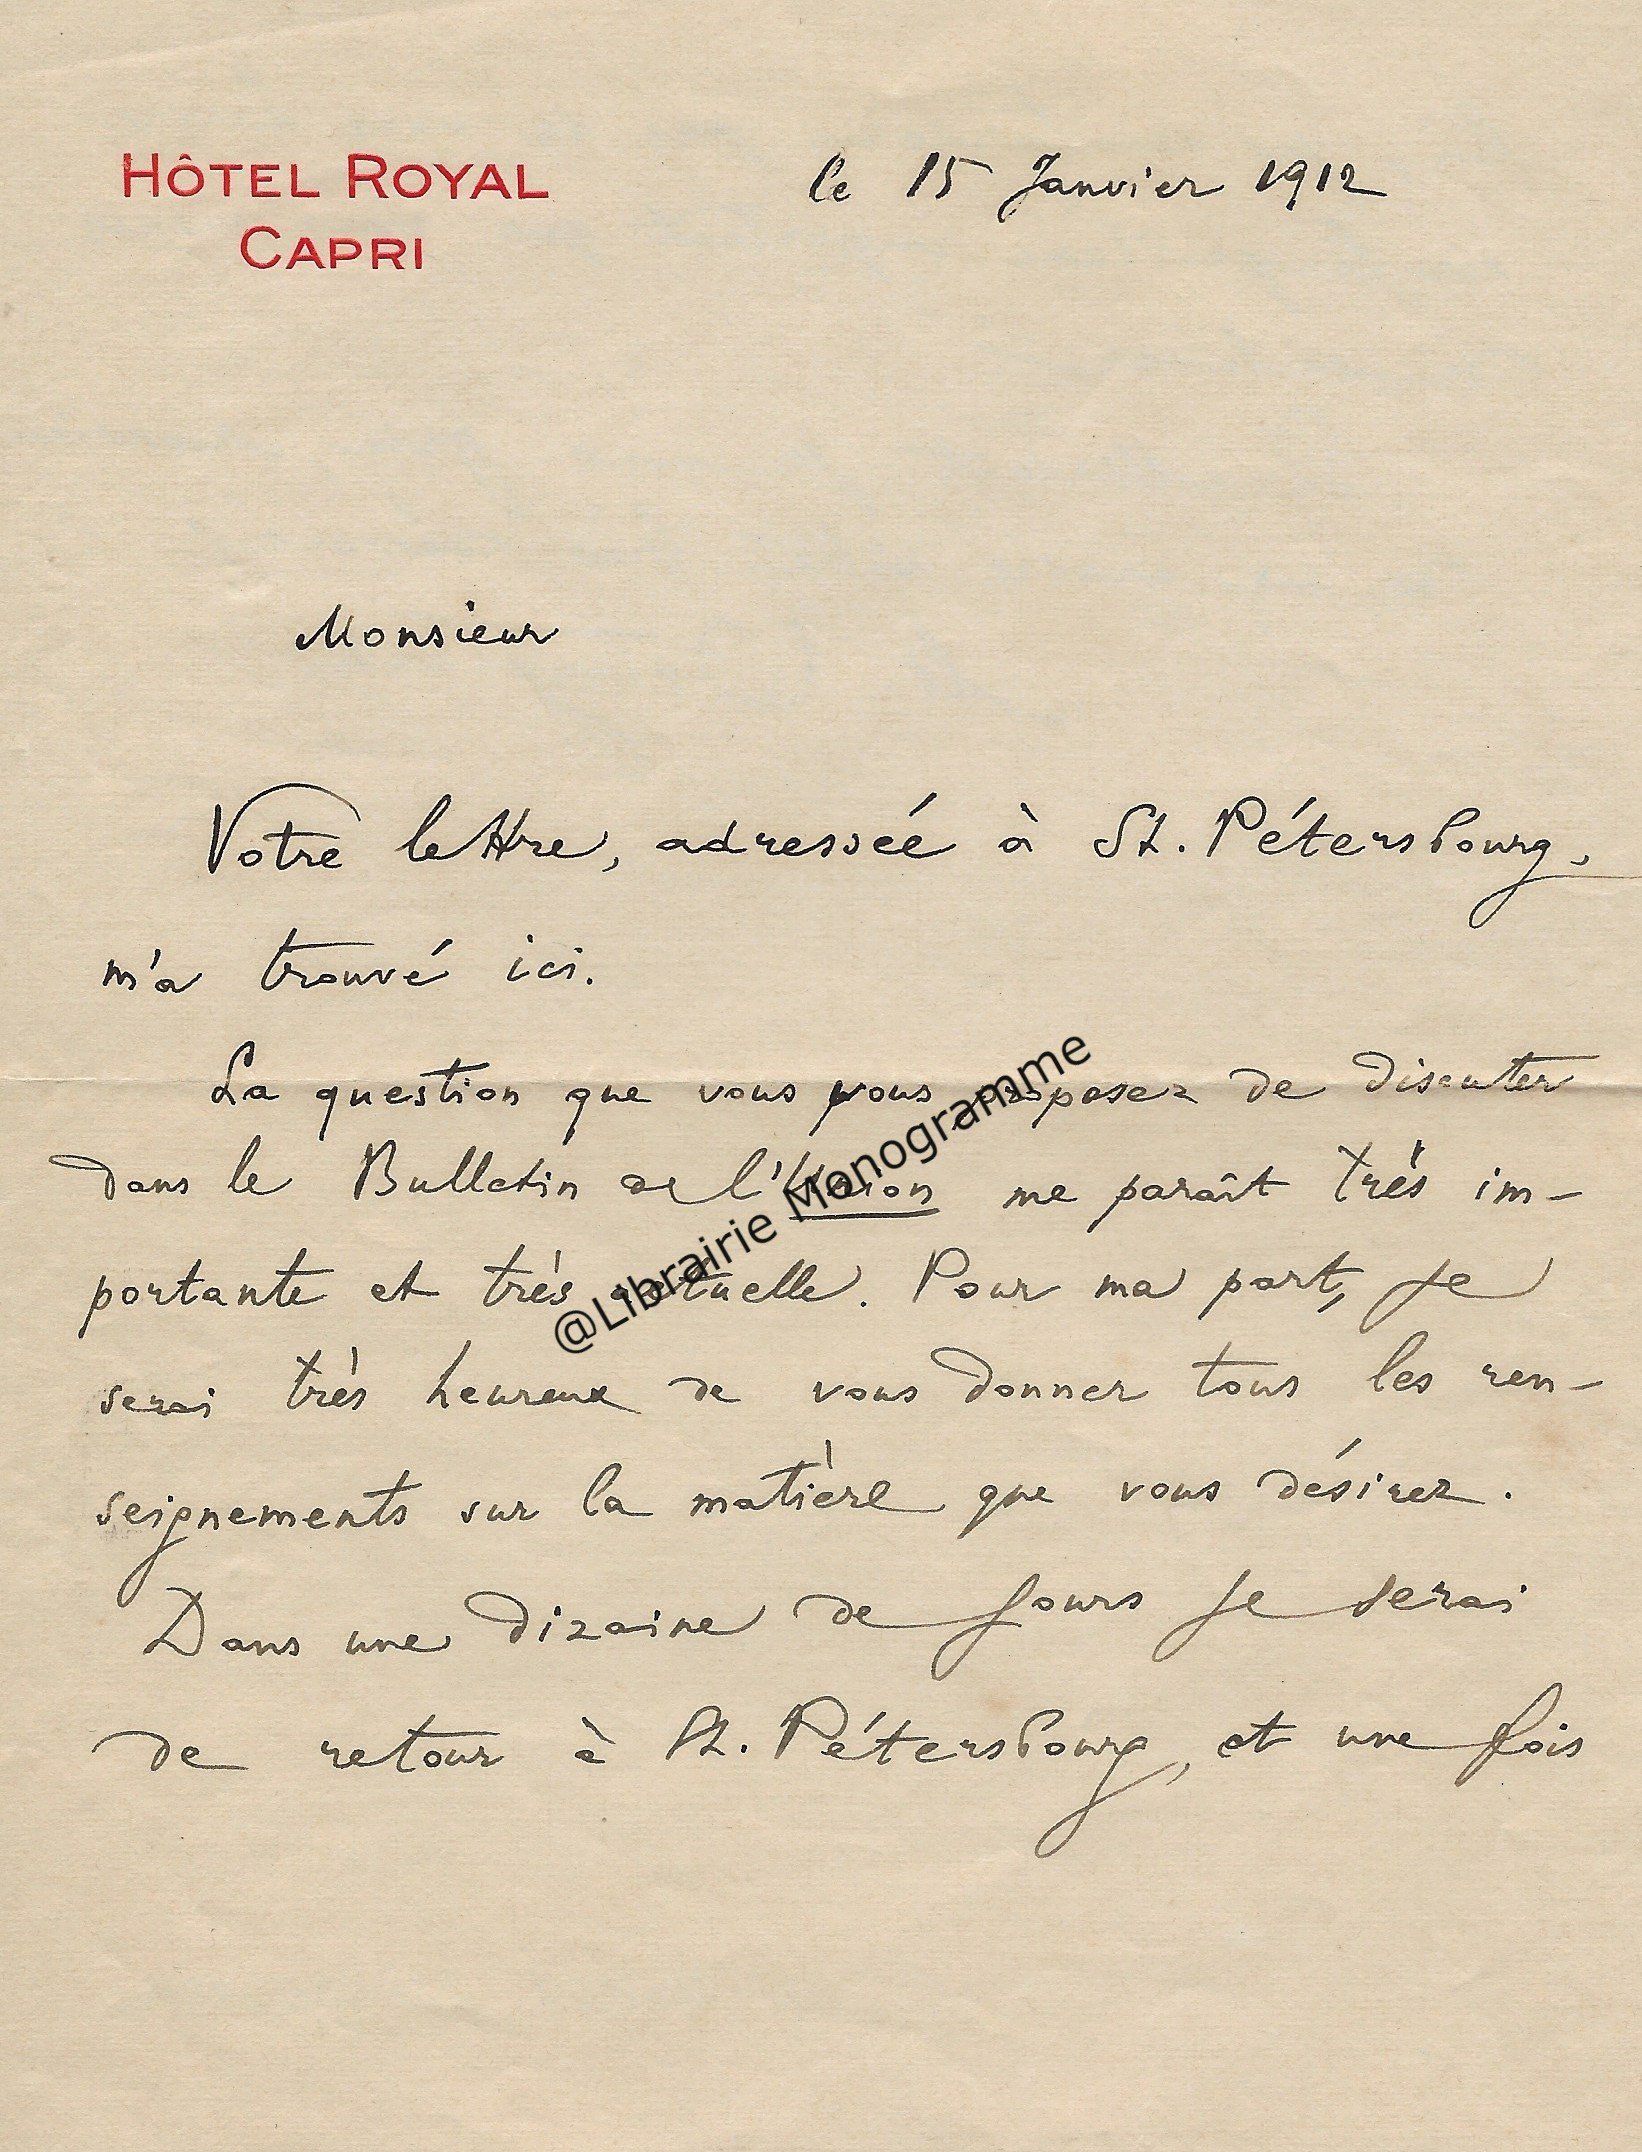 HÔTEL ROYAL
CAPRI
le 15 Janvier 1912
Monsieur
Votre lettre, adresséé à St. Pétersbourg,
m'a trouvé ici.
La question que vous vous proposez de discuter
dans le Bulletin de l'Union me paraît très im-
portante et très actuelle. Pour ma part, je
serai très heureux de vous donner tous les ren-
seignements sur la matière que vous désirez.
Dans une dizaine de jours je serai
de retour à St. Pétersbourg, et une fois
@Librairie Monogramme